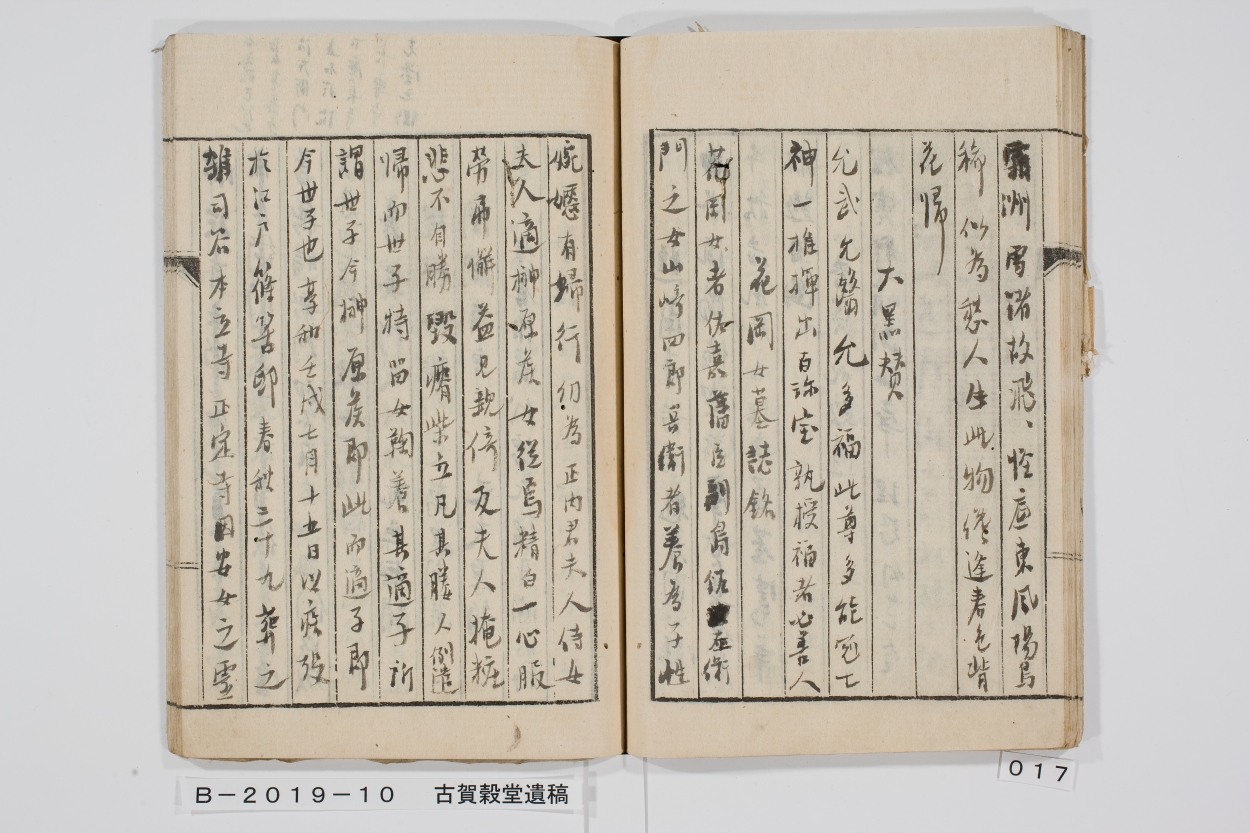 洲雪諸故飛、怪底東風陽鳥
稀似為愁人生此物儘逢春色背
花帰
大黒賛
允武允醫允多福此尊多能冠七
神一推揮出百珎宝孰授福者必善人
花岡女墓誌銘
花岡女者佐嘉舊臣副島佐左衛
門之女山崎四郎兵衛者養為子性
婉嬺有婦行初為正内君夫人侍女
夫人適榊原侯女従焉精白一心服
労弗懈益見親倚及夫人掩粧
悲不自勝毀瘠柴立凡其媵人例遣
帰而世子特留女鞠養其適子所
謂世子今榊原侯即此而適子即
今世子也享和壬戌七月十五日以疾歿
於江戸篠箸邸春秋二十九葬之
雑司谷本立寺正定寺因安女之霊
B－2019－10　古賀穀堂遺稿
017